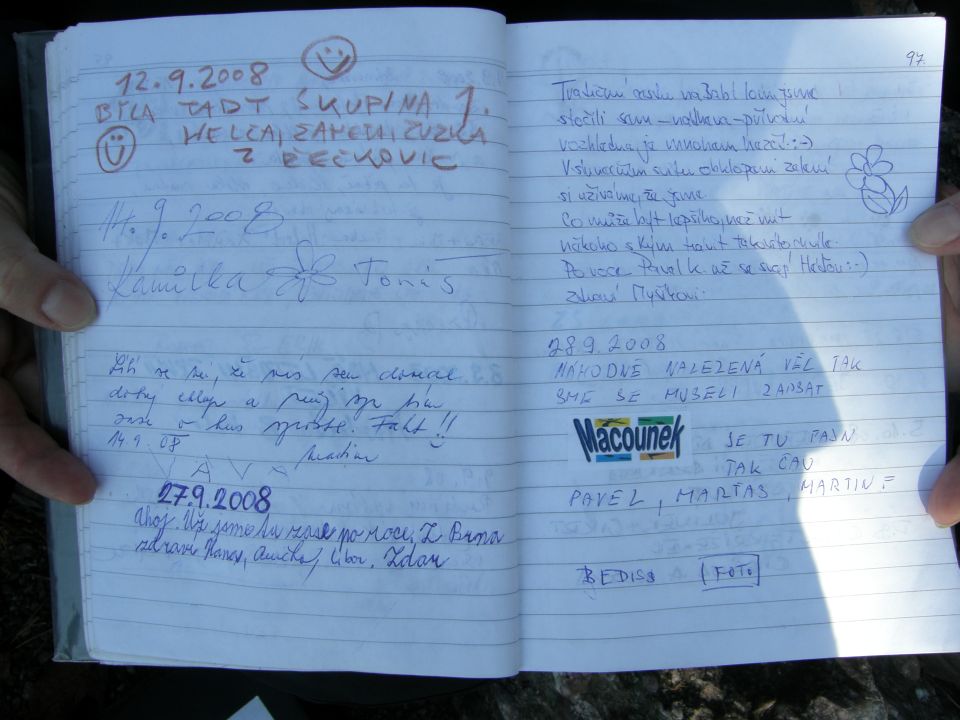 12.9.2008
BYLA TADY SKUPINA 1.
HELČA, ZUZKA
Z ŘEČKOVIC
14.9.2008
Kamilka Tomáš
Líbí se mi, že
dobrý a
zase o kus Fakt!!
14.9.08
Martin
27.9.2008
Ahoj. Už jsme tu zase po roce, Z Brna
zdraví Hanka, Anička, Libor. Zdar
97.
Tradiční cestu na Babí lom jsme
stočili sem -
rozhledna je mnohem hezčí. :-)
V slunečním svitu obklopeni zelení
si užíváme, že jsme.
Co může být lepšího, než mít
někoho s kým trávit takovéto chvíle.
Po roce Pavel K. už se svojí :-)
zdraví Myškovi.
28.9.2008
NÁHODNĚ NALEZENÁ VĚC TAK
SME SE MUSELI ZAPSAT
Macounek
JE TU FAJN
TAK ČAU
PAVEL, MARŤAS, MARTIN
BEDISO FOTO